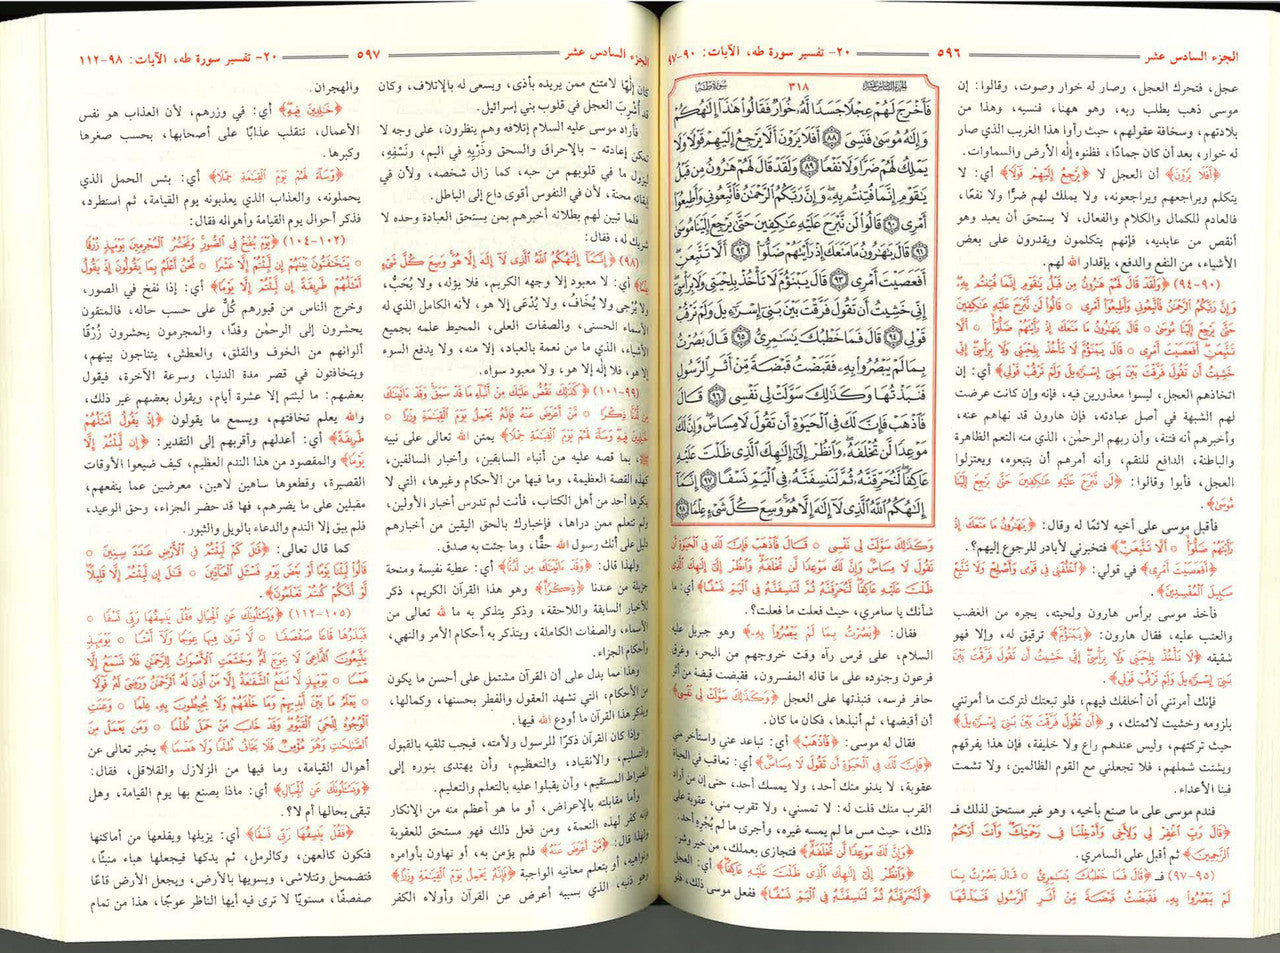 الجزء السادس عشر
٥٩٦
٢٠- تفسير سورة طه، الآيات: ٩٠-٩٧
عجل، فتحرك العجل، وصار له خوار وصوت، وقالوا: إن
موسى ذهب يطلب ربه، وهو ههنا، فنسيه، وهذا من
بلادتهم، وسخافة عقولهم، حيث رأوا هذا الغريب الذي صار
له خوار، بعد أن كان جمادًا، فظنوه إله الأرض والسماوات.
﴿أَفَلَا يَرَوْنَ﴾ أن العجل لا ﴿يَرْجِعُ إِلَيْهِمْ قَوْلًا﴾ أي: لا
يتكلم ويراجعهم ويراجعونه، ولا يملك لهم ضرًّا ولا نفعًا،
فالعادم للكمال والكلام والفعال، لا يستحق أن يعبد وهو
أنقص من عابديه، فإنهم يتكلمون ويقدرون على بعض
الأشياء، من النفع والدفع، بإقدار الله لهم.
(٩٠-٩٤) ﴿وَلَقَدْ قَالَ لَهُمْ هَٰرُونُ مِن قَبْلُ يَٰقَوْمِ إِنَّمَا فُتِنتُم بِهِۦ
وَإِنَّ رَبَّكُمُ ٱلرَّحْمَٰنُ فَٱتَّبِعُونِى وَأَطِيعُوٓا۟ أَمْرِى ۞ قَالُوا۟ لَن نَّبْرَحَ عَلَيْهِ عَٰكِفِينَ
حَتَّىٰ يَرْجِعَ إِلَيْنَا مُوسَىٰ ۞ قَالَ يَٰهَٰرُونُ مَا مَنَعَكَ إِذْ رَأَيْتَهُمْ ضَلُّوٓا۟ ۞ أَلَّا
تَتَّبِعَنِ أَفَعَصَيْتَ أَمْرِى ۞ قَالَ يَبْنَؤُمَّ لَا تَأْخُذْ بِلِحْيَتِى وَلَا بِرَأْسِىٓ إِنِّى
خَشِيتُ أَن تَقُولَ فَرَّقْتَ بَيْنَ بَنِىٓ إِسْرَٰٓءِيلَ وَلَمْ تَرْقُبْ قَوْلِى﴾ أي: إن
اتخاذهم العجل، ليسوا معذورين فيه، فإنه وإن كانت عرضت
لهم الشبهة في أصل عبادته، فإن هارون قد نهاهم عنه،
وأخبرهم أنه فتنة، وأن ربهم الرحمٰن، الذي منه النعم الظاهرة
والباطنة، الدافع للنقم، وأنه أمرهم أن يتبعوه، ويعتزلوا
العجل، فأبوا وقالوا: ﴿لَن نَّبْرَحَ عَلَيْهِ عَٰكِفِينَ حَتَّىٰ يَرْجِعَ إِلَيْنَا
مُوسَىٰ﴾
فأقبل موسى على أخيه لائمًا له وقال: ﴿يَٰهَٰرُونُ مَا مَنَعَكَ إِذْ
رَأَيْتَهُمْ ضَلُّوٓا۟ ۞ أَلَّا تَتَّبِعَنِ﴾ فتخبرني لأبادر للرجوع إليهم؟.
﴿أَفَعَصَيْتَ أَمْرِى﴾ في قولي: ﴿ٱخْلُفْنِى فِى قَوْمِى وَأَصْلِحْ وَلَا تَتَّبِعْ
سَبِيلَ ٱلْمُفْسِدِينَ﴾.
فأخذ موسى برأس هارون ولحيته، يجره من الغضب
والعتب عليه، فقال هارون: ﴿يَبْنَؤُمَّ﴾ ترقيق له، وإلا فهو
شقيقه ﴿لَا تَأْخُذْ بِلِحْيَتِى وَلَا بِرَأْسِىٓ إِنِّى خَشِيتُ أَن تَقُولَ فَرَّقْتَ بَيْنَ
بَنِىٓ إِسْرَٰٓءِيلَ وَلَمْ تَرْقُبْ قَوْلِى﴾.
فإنك أمرتني أن أخلفك فيهم، فلو تبعتك لتركت ما أمرتني
بلزومه وخشيت لائمتك، و ﴿أَن تَقُولَ فَرَّقْتَ بَيْنَ بَنِىٓ إِسْرَٰٓءِيلَ﴾
حيث تركتهم، وليس عندهم راع ولا خليفة، فإن هذا يفرقهم
ويشتت شملهم، فلا تجعلني مع القوم الظالمين، ولا تشمت
فينا الأعداء.
فندم موسى على ما صنع بأخيه، وهو غير مستحق لذلك فـ
﴿قَالَ رَبِّ ٱغْفِرْ لِى وَلِأَخِى وَأَدْخِلْنَا فِى رَحْمَتِكَ وَأَنتَ أَرْحَمُ
ٱلرَّٰحِمِينَ﴾ ثم أقبل على السامري.
(٩٥-٩٧) فـ ﴿قَالَ فَمَا خَطْبُكَ يَٰسَٰمِرِىُّ ۞ قَالَ بَصُرْتُ بِمَا
لَمْ يَبْصُرُوا۟ بِهِۦ فَقَبَضْتُ قَبْضَةً مِّنْ أَثَرِ ٱلرَّسُولِ فَنَبَذْتُهَا
الجزء السادس عشر ٣١٨ سورة طه
فَأَخْرَجَ لَهُمْ عِجْلًا جَسَدًا لَّهُۥ خُوَارٌ فَقَالُوا۟ هَٰذَآ إِلَٰهُكُمْ
وَإِلَٰهُ مُوسَىٰ فَنَسِىَ ٨٨ أَفَلَا يَرَوْنَ أَلَّا يَرْجِعُ إِلَيْهِمْ قَوْلًا وَلَا
يَمْلِكُ لَهُمْ ضَرًّا وَلَا نَفْعًا ٨٩ وَلَقَدْ قَالَ لَهُمْ هَٰرُونُ مِن قَبْلُ
يَٰقَوْمِ إِنَّمَا فُتِنتُم بِهِۦ وَإِنَّ رَبَّكُمُ ٱلرَّحْمَٰنُ فَٱتَّبِعُونِى وَأَطِيعُوٓا۟
أَمْرِى ٩٠ قَالُوا۟ لَن نَّبْرَحَ عَلَيْهِ عَٰكِفِينَ حَتَّىٰ يَرْجِعَ إِلَيْنَا مُوسَىٰ
٩١ قَالَ يَٰهَٰرُونُ مَا مَنَعَكَ إِذْ رَأَيْتَهُمْ ضَلُّوٓا۟ ٩٢ أَلَّا تَتَّبِعَنِ
أَفَعَصَيْتَ أَمْرِى ٩٣ قَالَ يَبْنَؤُمَّ لَا تَأْخُذْ بِلِحْيَتِى وَلَا بِرَأْسِىٓ
إِنِّى خَشِيتُ أَن تَقُولَ فَرَّقْتَ بَيْنَ بَنِىٓ إِسْرَٰٓءِيلَ وَلَمْ تَرْقُبْ
قَوْلِى ٩٤ قَالَ فَمَا خَطْبُكَ يَٰسَٰمِرِىُّ ٩٥ قَالَ بَصُرْتُ
بِمَا لَمْ يَبْصُرُوا۟ بِهِۦ فَقَبَضْتُ قَبْضَةً مِّنْ أَثَرِ ٱلرَّسُولِ
فَنَبَذْتُهَا وَكَذَٰلِكَ سَوَّلَتْ لِى نَفْسِى ٩٦ قَالَ
فَٱذْهَبْ فَإِنَّ لَكَ فِى ٱلْحَيَوٰةِ أَن تَقُولَ لَا مِسَاسَ وَإِنَّ لَكَ
مَوْعِدًا لَّن تُخْلَفَهُۥ وَٱنظُرْ إِلَىٰٓ إِلَٰهِكَ ٱلَّذِى ظَلْتَ عَلَيْهِ
عَاكِفًا لَّنُحَرِّقَنَّهُۥ ثُمَّ لَنَنسِفَنَّهُۥ فِى ٱلْيَمِّ نَسْفًا ٩٧ إِنَّمَآ
إِلَٰهُكُمُ ٱللَّهُ ٱلَّذِى لَآ إِلَٰهَ إِلَّا هُوَ وَسِعَ كُلَّ شَىْءٍ عِلْمًا ٩٨
وَكَذَٰلِكَ سَوَّلَتْ لِى نَفْسِى ۞ قَالَ فَٱذْهَبْ فَإِنَّ لَكَ فِى ٱلْحَيَوٰةِ أَن
تَقُولَ لَا مِسَاسَ وَإِنَّ لَكَ مَوْعِدًا لَّن تُخْلَفَهُۥ وَٱنظُرْ إِلَىٰٓ إِلَٰهِكَ ٱلَّذِى
ظَلْتَ عَلَيْهِ عَاكِفًا لَّنُحَرِّقَنَّهُۥ ثُمَّ لَنَنسِفَنَّهُۥ فِى ٱلْيَمِّ نَسْفًا﴾ أي: ما
شأنك يا سامري، حيث فعلت ما فعلت؟.
فقال: ﴿بَصُرْتُ بِمَا لَمْ يَبْصُرُوا۟ بِهِۦ﴾ وهو جبريل عليه
السلام، على فرس رآه وقت خروجهم من البحر، وغرق
فرعون وجنوده على ما قاله المفسرون، فقبضت قبضة من أثر
حافر فرسه، فنبذتها على العجل ﴿وَكَذَٰلِكَ سَوَّلَتْ لِى نَفْسِى﴾
أن أقبضها، ثم أنبذها، فكان ما كان.
فقال له موسى: ﴿فَٱذْهَبْ﴾ أي: تباعد عني واستأخر مني
﴿فَإِنَّ لَكَ فِى ٱلْحَيَوٰةِ أَن تَقُولَ لَا مِسَاسَ﴾ أي: تعاقب في الحياة
عقوبة، لا يدنو منك أحد، ولا يمسك أحد، حتى إن من أراد
القرب منك قلت له: لا تمسني، ولا تقرب مني، عقوبة على
ذلك، حيث مس ما لم يمسه غيره، وأجرى ما لم يُجْرِهِ أحد.
﴿وَإِنَّ لَكَ مَوْعِدًا لَّن تُخْلَفَهُۥ﴾ فتجازى بعملك، من خير وشر.
﴿وَٱنظُرْ إِلَىٰٓ إِلَٰهِكَ ٱلَّذِى ظَلْتَ عَلَيْهِ عَاكِفًا﴾ أي: العجل
﴿لَّنُحَرِّقَنَّهُۥ ثُمَّ لَنَنسِفَنَّهُۥ فِى ٱلْيَمِّ نَسْفًا﴾ ففعل موسى ذلك، فلو
الجزء السادس عشر
٥٩٧
٢٠- تفسير سورة طه، الآيات: ٩٨-١١٢
كان إلٰهًا لامتنع ممن يريده بأذى، ويسعى له بالإتلاف، وكان
قد أُشْرِبَ العجل في قلوب بني إسرائيل.
فأراد موسى عليه السلام إتلافه وهم ينظرون، على وجه لا
تمكن إعادته - بالإحراق والسحق وذَرْيِهِ في اليم، ونَسْفِهِ،
ليزول ما في قلوبهم من حبه، كما زال شخصه، ولأن في
إبقائه محنة، لأن في النفوس أقوى داع إلى الباطل.
فلما تبين لهم بطلانه أخبرهم بمن يستحق العبادة وحده لا
شريك له، فقال:
(٩٨) ﴿إِنَّمَآ إِلَٰهُكُمُ ٱللَّهُ ٱلَّذِى لَآ إِلَٰهَ إِلَّا هُوَ وَسِعَ كُلَّ شَىْءٍ
عِلْمًا﴾ أي: لا معبود إلا وجهه الكريم، فلا يؤله، ولا يُحَبُّ،
ولا يُرجى ولا يُخَافُ، ولا يُدْعَى إلا هو، لأنه الكامل الذي له
الأسماء الحسنى، والصفات العلى، المحيط علمه بجميع
الأشياء، الذي ما من نعمة بالعباد، إلا منه، ولا يدفع السوء
إلا هو، فلا إله إلا هو، ولا معبود سواه.
(٩٩-١٠١) ﴿كَذَٰلِكَ نَقُصُّ عَلَيْكَ مِنْ أَنۢبَآءِ مَا قَدْ سَبَقَ وَقَدْ ءَاتَيْنَٰكَ
مِن لَّدُنَّا ذِكْرًا ۞ مَّنْ أَعْرَضَ عَنْهُ فَإِنَّهُۥ يَحْمِلُ يَوْمَ ٱلْقِيَٰمَةِ وِزْرًا ۞
خَٰلِدِينَ فِيهِ وَسَآءَ لَهُمْ يَوْمَ ٱلْقِيَٰمَةِ حِمْلًا﴾ يمتن الله تعالى على نبيه
ﷺ، بما قصه عليه من أنباء السابقين، وأخبار السالفين،
كهذه القصة العظيمة، وما فيها من الأحكام وغيرها، التي لا
ينكرها أحد من أهل الكتاب، فأنت لم تدرس أخبار الأولين،
ولم تتعلم ممن دراها، فإخبارك بالحق اليقين من أخبارهم
دليل على أنك رسول الله حقًّا، وما جئت به صدق.
ولهذا قال: ﴿وَقَدْ ءَاتَيْنَٰكَ مِن لَّدُنَّا﴾ أي: عطية نفيسة ومنحة
جزيلة من عندنا ﴿ذِكْرًا﴾ وهو هذا القرآن الكريم، ذكر
للأخبار السابقة واللاحقة، وذكر يتذكر به ما لله تعالى من
الأسماء، والصفات الكاملة، ويتذكر به أحكام الأمر والنهي،
وأحكام الجزاء.
وهذا مما يدل على أن القرآن مشتمل على أحسن ما يكون
من الأحكام، التي تشهد العقول والفطر بحسنها، وكمالها،
ويذكر هذا القرآن ما أودع الله فيها.
وإذا كان القرآن ذكرًا للرسول ولأمته، فيجب تلقيه بالقبول
والتسليم، والانقياد، والتعظيم، وأن يهتدى بنوره إلى
الصراط المستقيم، وأن يقبلوا عليه بالتعلم والتعليم.
وأما مقابلته بالإعراض، أو ما هو أعظم منه من الإنكار
فإنه كفر لهذه النعمة، ومن فعل ذلك فهو مستحق للعقوبة
ولهذا قال: ﴿مَّنْ أَعْرَضَ عَنْهُ﴾ فلم يؤمن به، أو تهاون بأوامره
ونواهيه، أو بتعلم معانيه الواجبة ﴿فَإِنَّهُۥ يَحْمِلُ يَوْمَ ٱلْقِيَٰمَةِ وِزْرًا﴾
وهو ذنبه، الذي بسببه أعرض عن القرآن وأولاه الكفر
والهجران.
﴿خَٰلِدِينَ فِيهِ﴾ أي: في وزرهم، لأن العذاب هو نفس
الأعمال، تنقلب عذابًا على أصحابها، بحسب صغرها
وكبرها.
﴿وَسَآءَ لَهُمْ يَوْمَ ٱلْقِيَٰمَةِ حِمْلًا﴾ أي: بئس الحمل الذي
يحملونه، والعذاب الذي يعذبونه يوم القيامة، ثم استطرد،
فذكر أحوال يوم القيامة وأهواله فقال:
(١٠٢-١٠٤) ﴿يَوْمَ يُنفَخُ فِى ٱلصُّورِ وَنَحْشُرُ ٱلْمُجْرِمِينَ يَوْمَئِذٍ زُرْقًا
۞ يَتَخَٰفَتُونَ بَيْنَهُمْ إِن لَّبِثْتُمْ إِلَّا عَشْرًا ۞ نَّحْنُ أَعْلَمُ بِمَا يَقُولُونَ إِذْ يَقُولُ
أَمْثَلُهُمْ طَرِيقَةً إِن لَّبِثْتُمْ إِلَّا يَوْمًا﴾ أي: إذا نفخ في الصور،
وخرج الناس من قبورهم كل على حسب حاله، فالمتقون
يحشرون إلى الرحمٰن وفدًا، والمجرمون يحشرون زُرْقًا
ألوانهم من الخوف والقلق، والعطش، يتناجون بينهم،
ويتخافتون في قصر مدة الدنيا، وسرعة الآخرة، فيقول
بعضهم: ما لبثتم إلا عشرة أيام، ويقول بعضهم غير ذلك،
والله يعلم تخافتهم، ويسمع ما يقولون ﴿إِذْ يَقُولُ أَمْثَلُهُمْ
طَرِيقَةً﴾ أي: أعدلهم وأقربهم إلى التقدير: ﴿إِن لَّبِثْتُمْ إِلَّا
يَوْمًا﴾ والمقصود من هذا الندم العظيم، كيف ضيعوا الأوقات
القصيرة، وقطعوها ساهين لاهين، معرضين عما ينفعهم،
مقبلين على ما يضرهم، فها قد حضر الجزاء، وحق الوعيد،
فلم يبق إلا الندم والدعاء بالويل والثبور.
كما قال تعالى: ﴿قَٰلَ كَمْ لَبِثْتُمْ فِى ٱلْأَرْضِ عَدَدَ سِنِينَ ۞
قَالُوا۟ لَبِثْنَا يَوْمًا أَوْ بَعْضَ يَوْمٍ فَسْـَٔلِ ٱلْعَآدِّينَ ۞ قَٰلَ إِن لَّبِثْتُمْ إِلَّا قَلِيلًا
لَّوْ أَنَّكُمْ كُنتُمْ تَعْلَمُونَ﴾.
(١٠٥-١١٢) ﴿وَيَسْـَٔلُونَكَ عَنِ ٱلْجِبَالِ فَقُلْ يَنسِفُهَا رَبِّى نَسْفًا ۞
فَيَذَرُهَا قَاعًا صَفْصَفًا ۞ لَّا تَرَىٰ فِيهَا عِوَجًا وَلَآ أَمْتًا ۞ يَوْمَئِذٍ
يَتَّبِعُونَ ٱلدَّاعِىَ لَا عِوَجَ لَهُۥ وَخَشَعَتِ ٱلْأَصْوَاتُ لِلرَّحْمَٰنِ فَلَا تَسْمَعُ إِلَّا
هَمْسًا ۞ يَوْمَئِذٍ لَّا تَنفَعُ ٱلشَّفَٰعَةُ إِلَّا مَنْ أَذِنَ لَهُ ٱلرَّحْمَٰنُ وَرَضِىَ لَهُۥ قَوْلًا
۞ يَعْلَمُ مَا بَيْنَ أَيْدِيهِمْ وَمَا خَلْفَهُمْ وَلَا يُحِيطُونَ بِهِۦ عِلْمًا ۞ وَعَنَتِ
ٱلْوُجُوهُ لِلْحَىِّ ٱلْقَيُّومِ وَقَدْ خَابَ مَنْ حَمَلَ ظُلْمًا ۞ وَمَن يَعْمَلْ مِنَ
ٱلصَّٰلِحَٰتِ وَهُوَ مُؤْمِنٌ فَلَا يَخَافُ ظُلْمًا وَلَا هَضْمًا﴾ يخبر تعالى عن
أهوال القيامة، وما فيها من الزلازل والقلاقل، فقال:
﴿وَيَسْـَٔلُونَكَ عَنِ ٱلْجِبَالِ﴾ أي: ماذا يصنع بها يوم القيامة، وهل
تبقى بحالها أم لا؟.
﴿فَقُلْ يَنسِفُهَا رَبِّى نَسْفًا﴾ أي: يزيلها ويقلعها من أماكنها
فتكون كالعهن، وكالرمل، ثم يدكها فيجعلها هباء منبثًّا،
فتضمحل وتتلاشى، ويسويها بالأرض، ويجعل الأرض قاعًا
صفصفًا، مستويًا لا ترى فيه أيها الناظر عوجًا، هذا من تمام